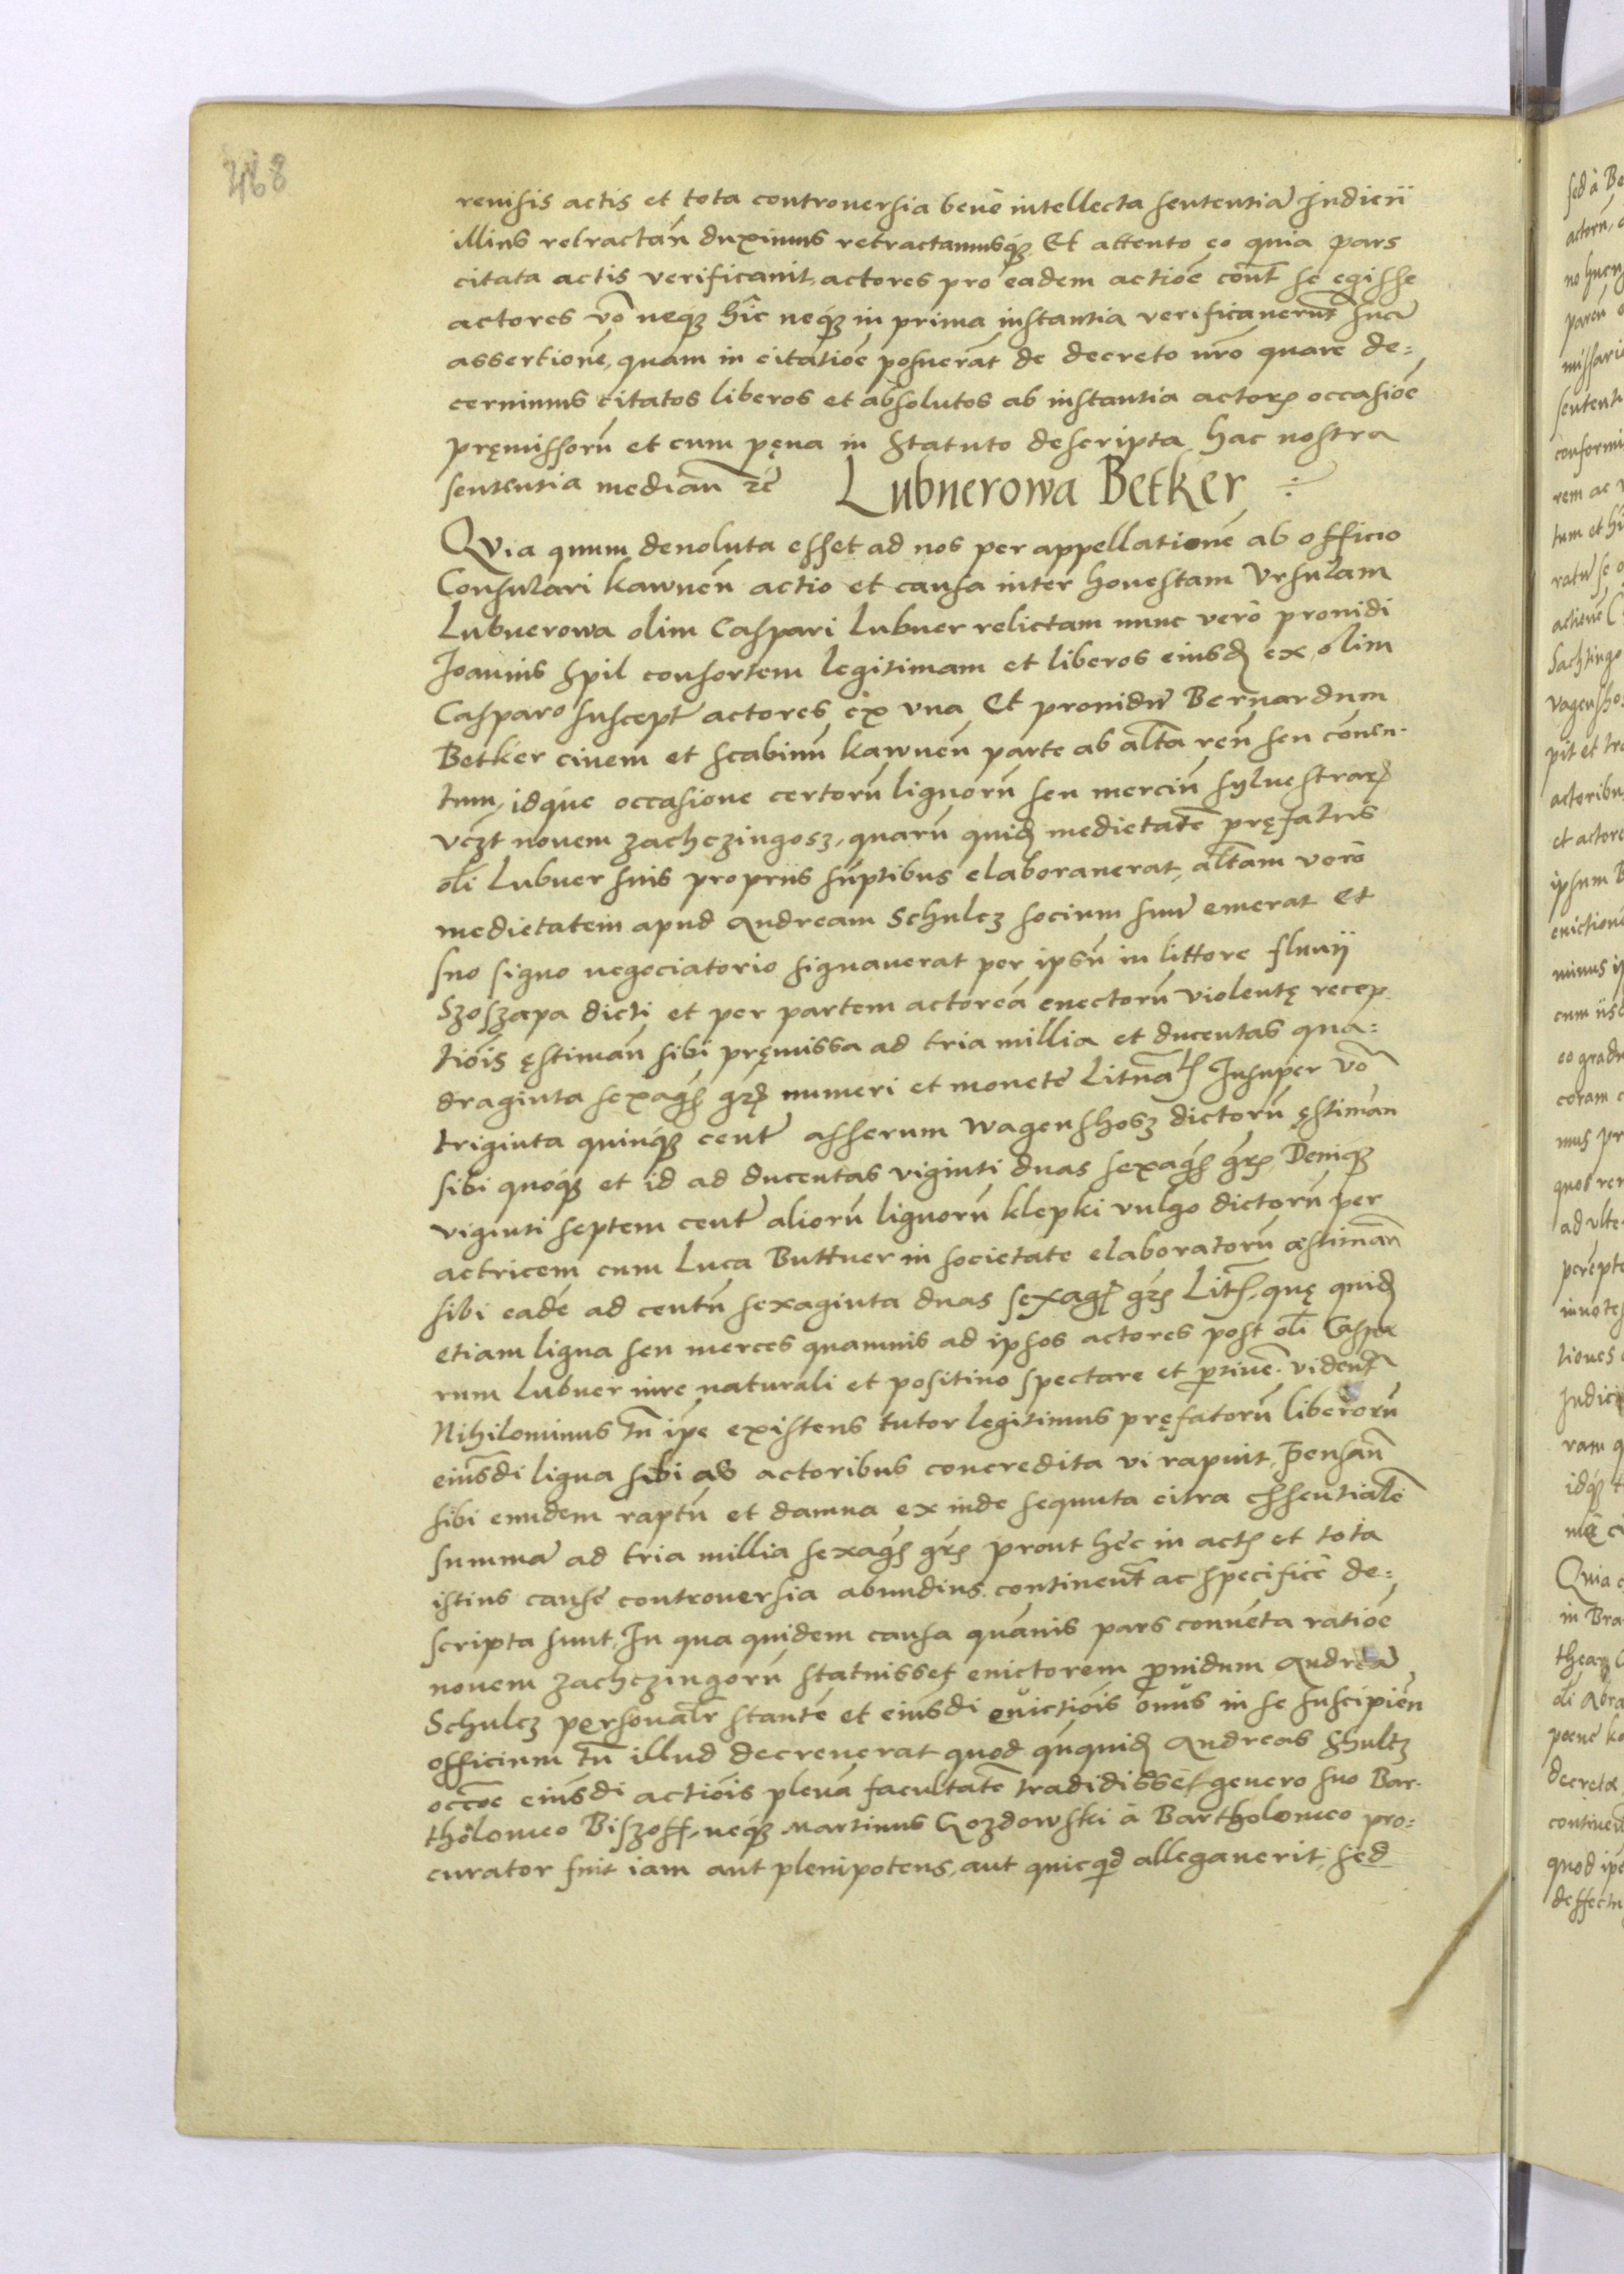 468
reuisis actis et tota controuersia benè intellecta sententiã Iudicii
illius retractañ duximus retractamusqꝫ Et attento eo quia pars
citata actis verificauit, actores pro eadem actiõe cont̃ se egisse
actores võ neqꝫ hîc neqꝫ in prima instantia verificauerunt̃ suã
assertionẽ, quam in citatiõe posuerãt de decreto nr̃o quare de=
cernimus citatos liberos et absolutos ab instantia actorꝫ occasiõe
pręmissorũ et cum pęna in Statuto descripta hac nostra
sententia median̄ &c̃ Lubnerowa Betker ÷
QVia quum deuoluta esset ad nos per appellationẽ ab officio
Consulari kawneñ actio et causa inter honestam Vrsulam
Lubnerowa olim Caspari Lubner relictam nunc verò prouidi
Ioannis Spil consortem legitimam et liberos eiusdꝫ ex olim
Casparo suscept̃ actores ex vna Et prouidũ Bernardum
Betker ciuem et scabinũ kawneñ parte ab alt̃a reũ seu conuen-
tum, idque occasione certorũ lignorũ seu merciũ syluestrarꝫ
vczt nouem zachczingosz, quarũ quidꝫ medietatẽ pręfatus
oli̅ Lubner suis proprus sũptibus elaborauerat, alt̃am verò
medietatem apud Andream Schulcz socium suũ emerat et
suo signo negociatorio signauerat per ipsũ in littore fluuij
Szoszapa dicti et per partem actoreã euectorũ violentę recep-
tiõis ęstimañ sibi pręmissa ad tria millia et ducentas qua=
draginta sexagꝫ grꝫ numeri et monetę Litua̅lꝫ Insuper võ
triginta quinqꝫ cent̃ asserum wagenshosz dictorũ ęstiman
sibi quoqꝫ et id ad ducentas viginti duas sexagꝫ grꝫ Deniqꝫ
viginti septem cent̃ aliorũ lignorũ klepki vulgo dictorũ per
actricem cum Luca Buttner in societate elaboratorũ æstiman̄
sibi eadẽ ad centũ sexaginta duas sexagꝫ grꝫ Litꝫ, quę quidꝫ
etiam ligna seu merces quamuis ad ipsos actores post oli̅ Caspa
rum Lubner iure naturali et positiuo spectare et ꝑtine. vident̃
Nihilominus tñ ipẽ existens tutor legitimus pręfatorũ liberorũ
eiusdi̅ ligna sibi ab actoribus concredita vi rapuit, Pensañ
sibi eundem raptũ et damna ex inde sequuta citra essentialẽ
summã ad tria millia sexagꝫ grꝫ prout hęc in actꝫ et tota
istius causę controuersia abundius continent̃ ac specificè de=
scripta sunt, In qua quidem causa quãuis pars conuẽta ratiõe
nouem zachczingorũ statuisset euictorem ꝓuidum Andreã
Schulcz personalr̃ stantẽ et eiusdi̅ euictiõis onus in se suscipieñ
officium tñ illud decreuerat quod quãquidꝫ Andreas Shultz
occõe eiusdi̅ actiõis plenã facultatẽ tradidisset genero suo Bar-
tholomeo Biszoff, neqꝫ Martinus Gozdowski à Bartholomeo pro=
curator fuit iam aut plenipotens, aut quicqꝫd allegauerit, sed